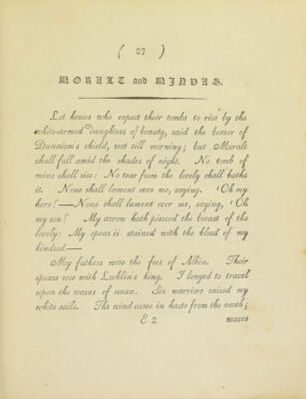 ( 27 )
MORALT and MINDAS.
Let heroes who expect their tombs to rise by the
white-armed daughters of beauty, said the bearer of
Dunaion's shield, rest till morning; but Moralt
shall fall amid the shades of night. No tomb of
mine shall rise: No tear from the lovely shall bathe
it. None shall lament over me, saying, 'Oh my
hero!—None shall lament over me, saying, 'Oh
my son! My arrow hath pierced the breast of the
lovely: My spear is stained with the blood of my
kindred.—
My fathers were the foes of Albin. Their
spears rose with Lochlin's king. I longed to travel
upon the waves of ocean. Six warriors raised my
white sails. The wind came in haste from the north;
E 2
waves